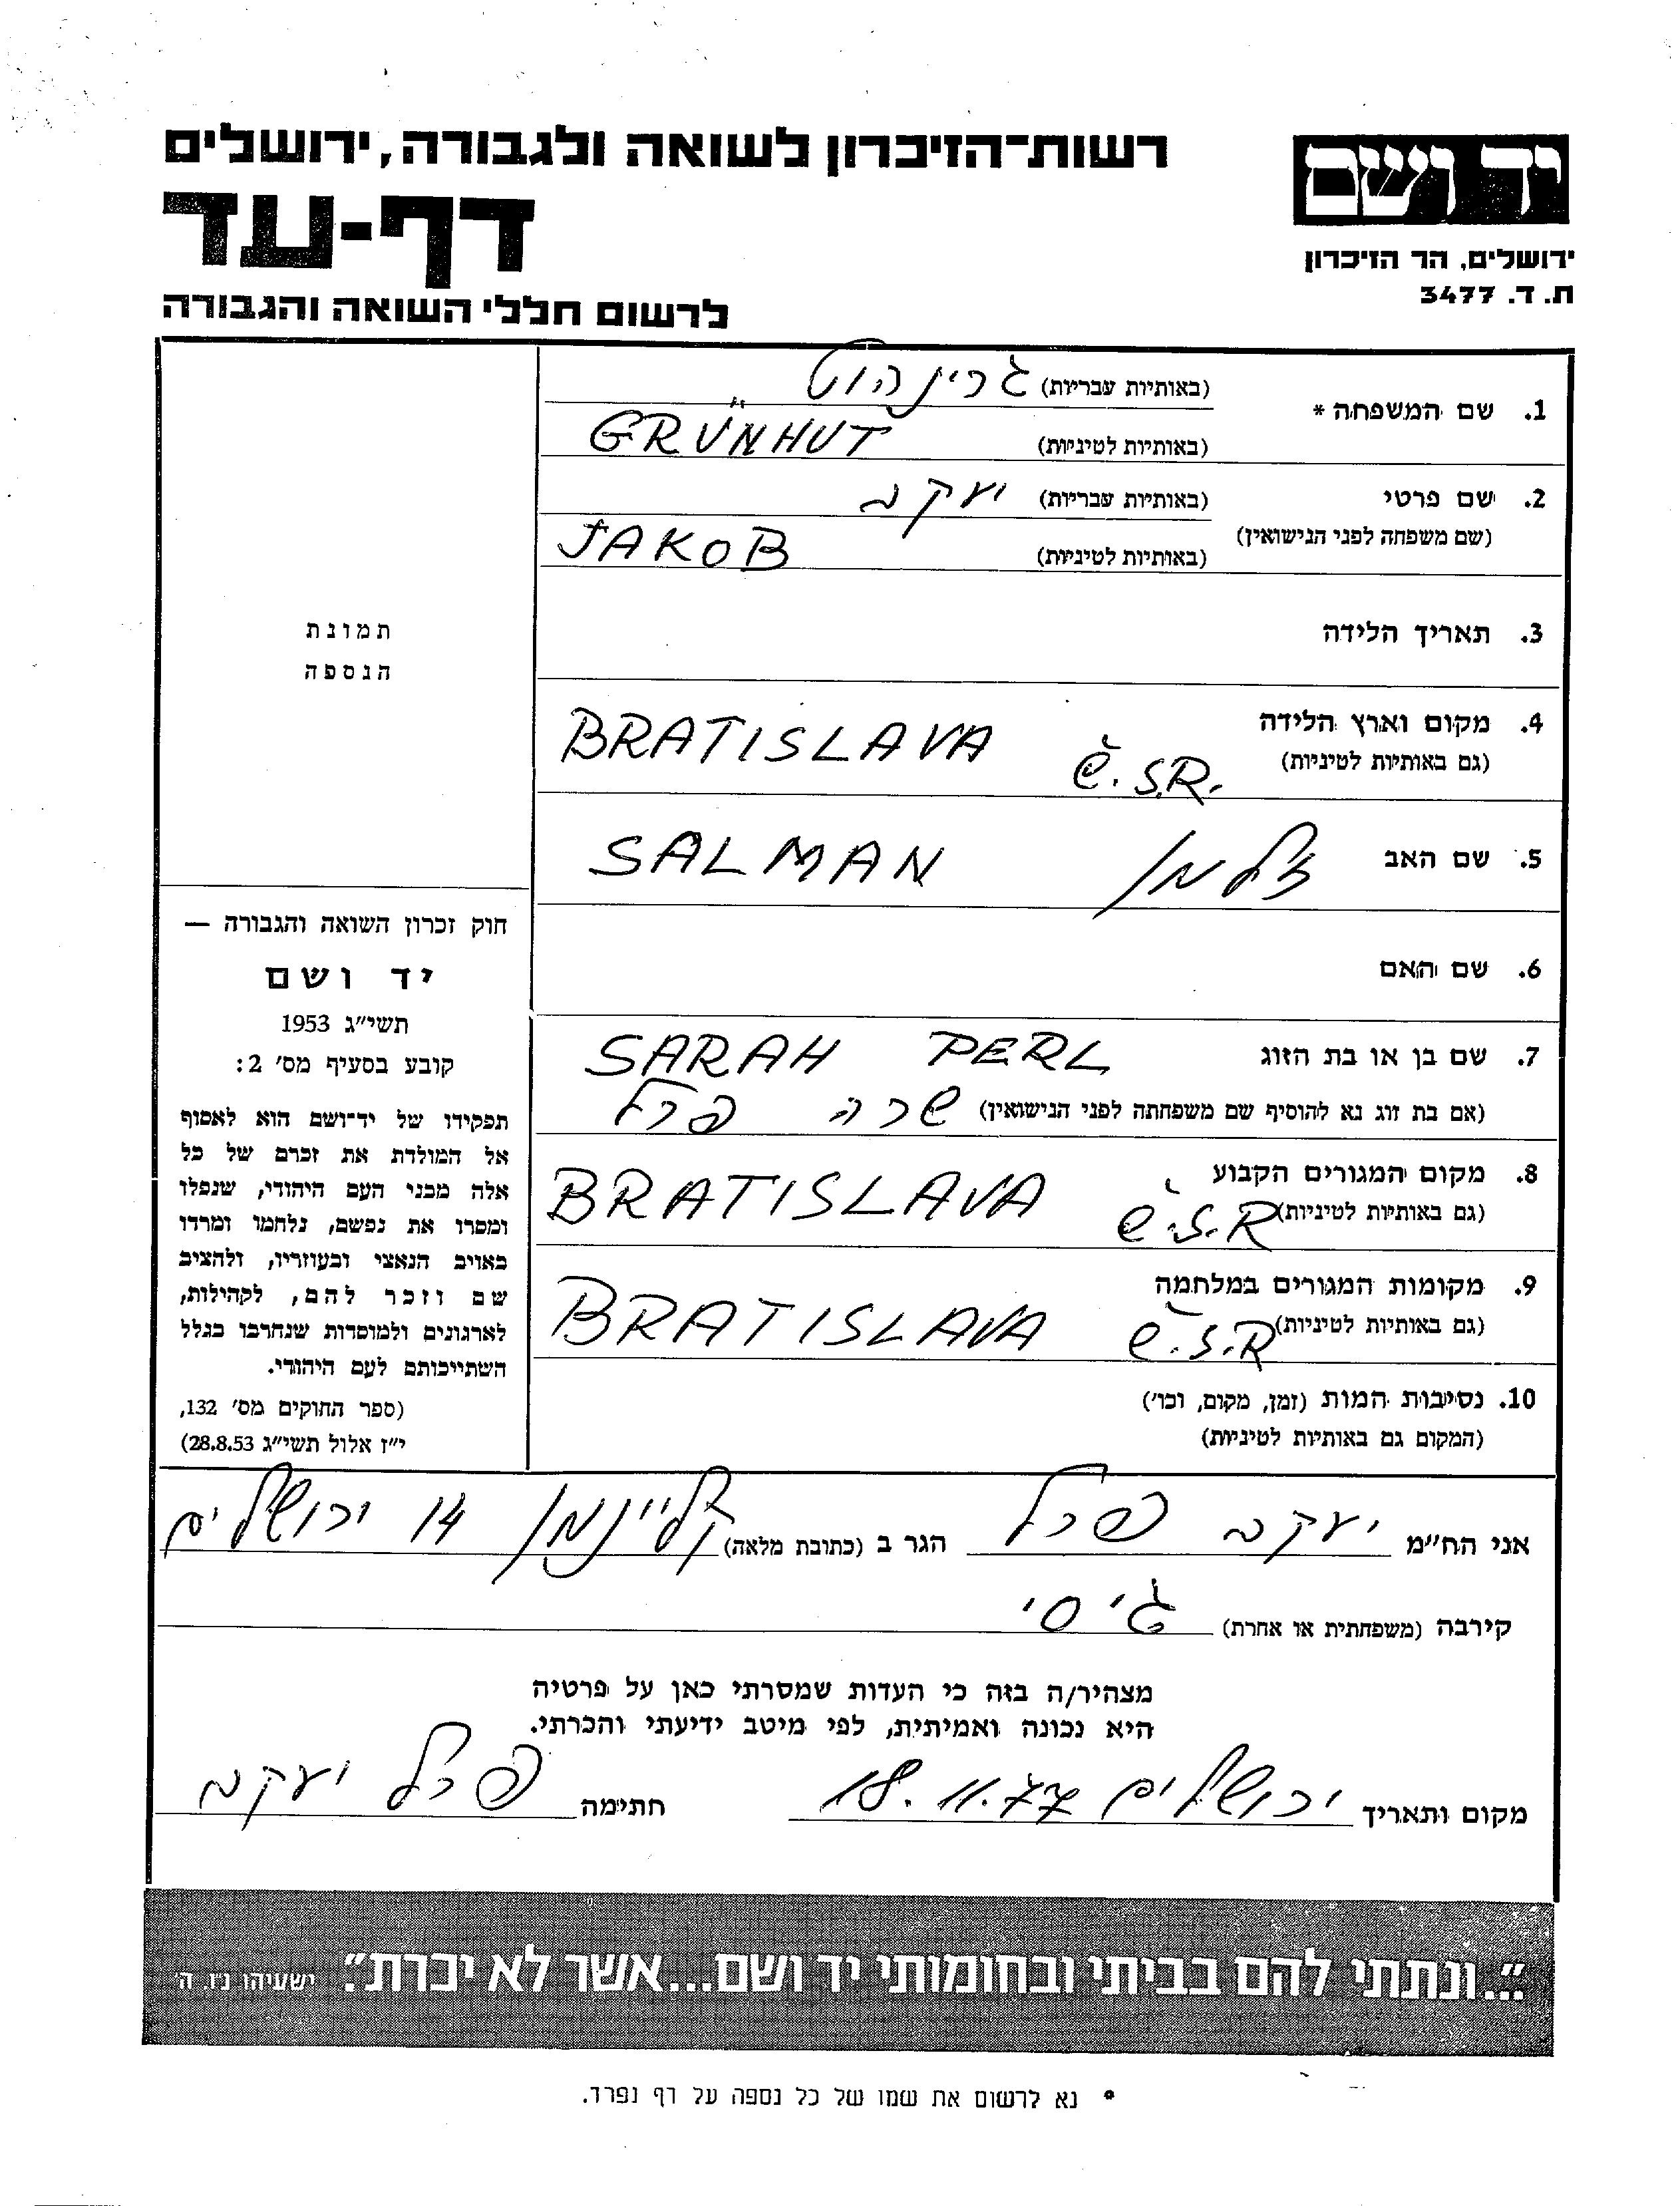 יד ושם
ירושלים, הר הזיכרון
ת. ד. 3477
רשות־הזיכרון לשואה ולגבורה, ירושלים
דף-עד
לרשום חללי השואה והגבורה
1. שם המשפחה * (באותיות עבריות) גרינהוט
(באותיות לטיניות) GRÜNHUT
2. שם פרטי (באותיות עבריות) יעקב
(שם משפחה לפני הנישואין) (באותיות לטיניות) JAKOB
3. תאריך הלידה
4. מקום וארץ הלידה
(גם באותיות לטיניות) BRATISLAVA Č.S.R.
5. שם האב זלמן SALMAN
6. שם האם
7. שם בן או בת הזוג SARAH PERL
(אם בת זוג נא להוסיף שם משפחתה לפני הנישואין) שרה פרל
8. מקום המגורים הקבוע
(גם באותיות לטיניות) BRATISLAVA Č.S.R
9. מקומות המגורים במלחמה
(גם באותיות לטיניות) BRATISLAVA Č.S.R
10. נסיבות המות (זמן, מקום, וכו')
(המקום גם באותיות לטיניות)
תמונת
הנספה
חוק זכרון השואה והגבורה —
יד ושם
תשי"ג 1953
קובע בסעיף מס' 2:
תפקידו של יד־ושם הוא לאסוף
אל המולדת את זכרם של כל
אלה מבני העם היהודי, שנפלו
ומסרו את נפשם, נלחמו ומרדו
באויב הנאצי ובעוזריו, ולהציב
שם וזכר להם, לקהילות,
לארגונים ולמוסדות שנחרבו בגלל
השתייכותם לעם היהודי.
(ספר החוקים מס' 132,
י"ז אלול תשי"ג 28.8.53)
אני הח"מ יעקב פרל הגר ב (כתובת מלאה) קליינמן 14 ירושלים
קירבה (משפחתית או אחרת) גיסי
מצהיר/ה בזה כי העדות שמסרתי כאן על פרטיה
היא נכונה ואמיתית, לפי מיטב ידיעתי והכרתי.
מקום ותאריך ירושלים 18.11.77 חתימה פרל יעקב
"...ונתתי להם בביתי ובחומותי יד ושם...אשר לא יכרת". ישעיהו נ"ו, ה'
* נא לרשום את שמו של כל נספה על דף נפרד.